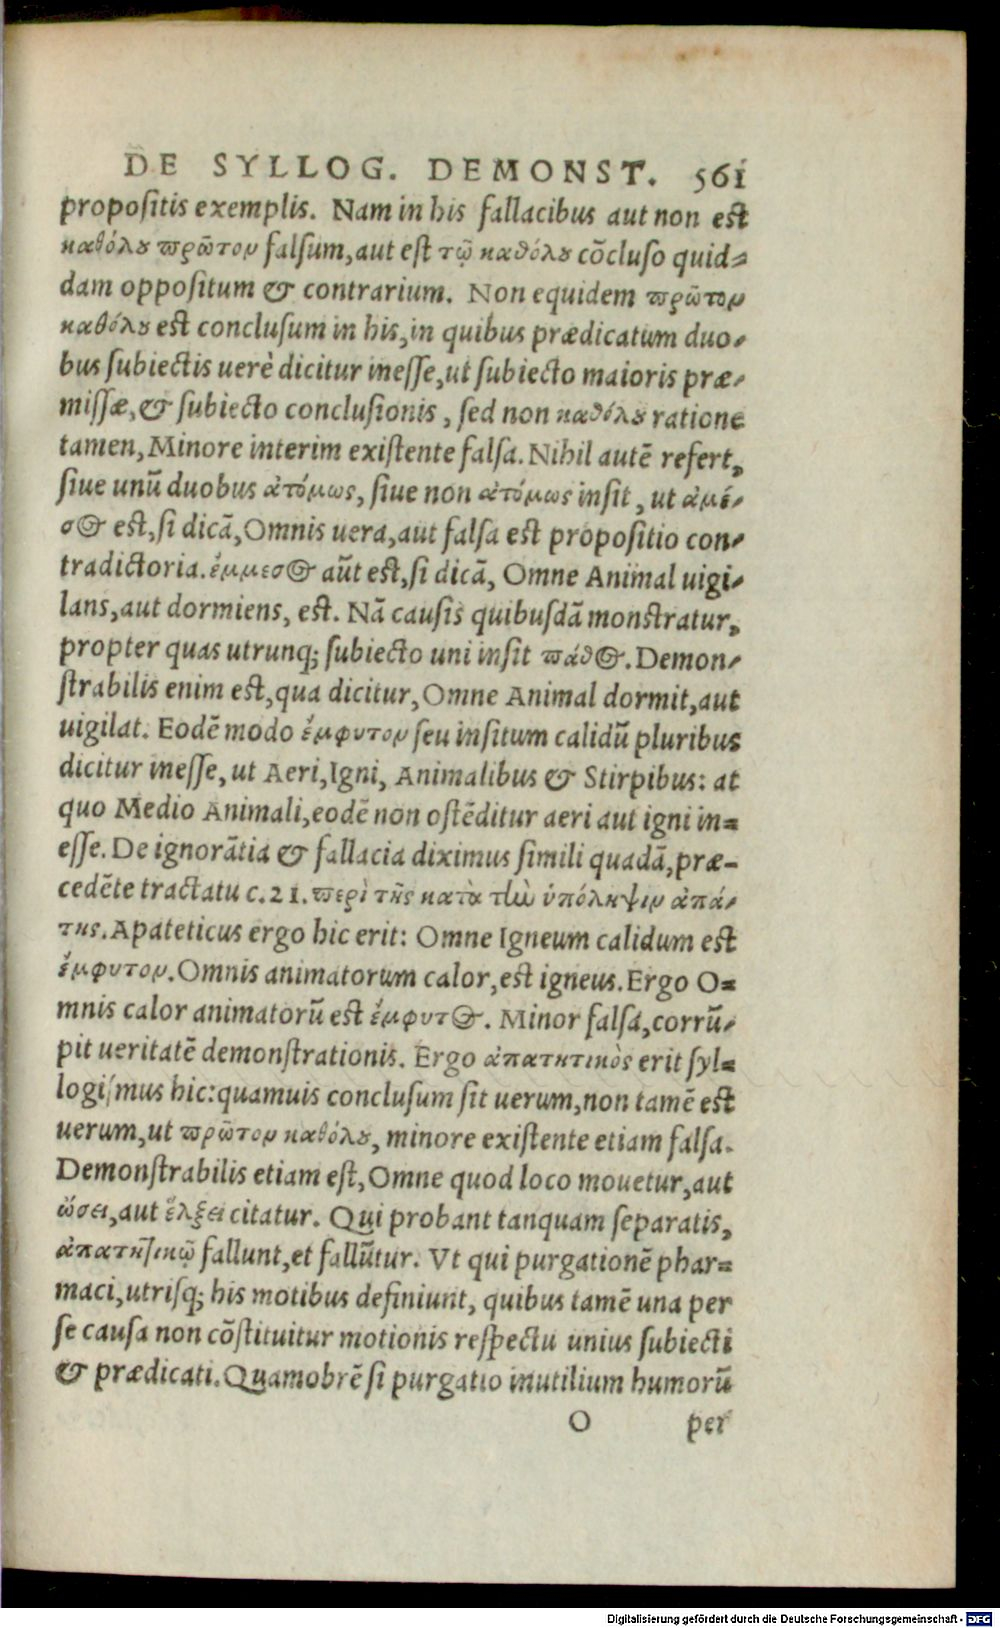 DE SYLLOG. DEMONST. 561
propositis exemplis. Nam in his fallacibus aut non est
καθόλȣ πρῶτον falsum, aut est τῷ καθόλȣ cōcluso quid-
dam oppositum & contrarium. Non equidem πρῶτον
καθόλȣ est conclusum in his, in quibus prædicatum duo-
bus subiectis uerè dicitur inesse, ut subiecto maioris præ-
missæ, & subiecto conclusionis, sed non καθόλȣ ratione
tamen, Minore interim existente falsa. Nihil autē refert,
siue unū duobus ἀτόμως, siue non ἀτόμως insit, ut ἀμέ-
σος est, si dicā, Omnis uera, aut falsa est propositio con-
tradictoria. ἔμμεσος aūt est, si dicā, Omne Animal uigi-
lans, aut dormiens, est. Nā causis quibusdā monstratur,
propter quas utrunq; subiecto uni insit πάθος. Demon-
strabilis enim est, qua dicitur, Omne Animal dormit, aut
uigilat. Eodē modo ἔμφυτον seu insitum calidū pluribus
dicitur inesse, ut Aeri, Igni, Animalibus & Stirpibus: at
quo Medio Animali, eodē non ostēditur aeri aut igni in-
esse. De ignorātia & fallacia diximus simili quadā, præ-
cedēte tractatu c. 21. περὶ τῆς κατὰ τὴν ὑπόληψιν ἀπά-
της. Apateticus ergo hic erit: Omne Igneum calidum est
ἔμφυτον. Omnis animatorum calor, est igneus. Ergo O-
mnis calor animatorū est ἔμφυτος. Minor falsa, corrū-
pit ueritatē demonstrationis. Ergo ἀπατητικὸς erit syl-
logismus hic: quamuis conclusum sit uerum, non tamē est
uerum, ut πρῶτον καθόλȣ, minore existente etiam falsa.
Demonstrabilis etiam est, Omne quod loco mouetur, aut
ὤσει, aut ἕλξει citatur. Qui probant tanquam separatis,
ἀπατητικῷ fallunt, et fallūtur. Vt qui purgationē phar-
maci, utrisq; his motibus definiunt, quibus tamē una per
se causa non cōstituitur motionis respectu unius subiecti
& prædicati. Quamobrē si purgatio inutilium humorū
O per
Digitalisierung gefördert durch die Deutsche Forschungsgemeinschaft - DFG